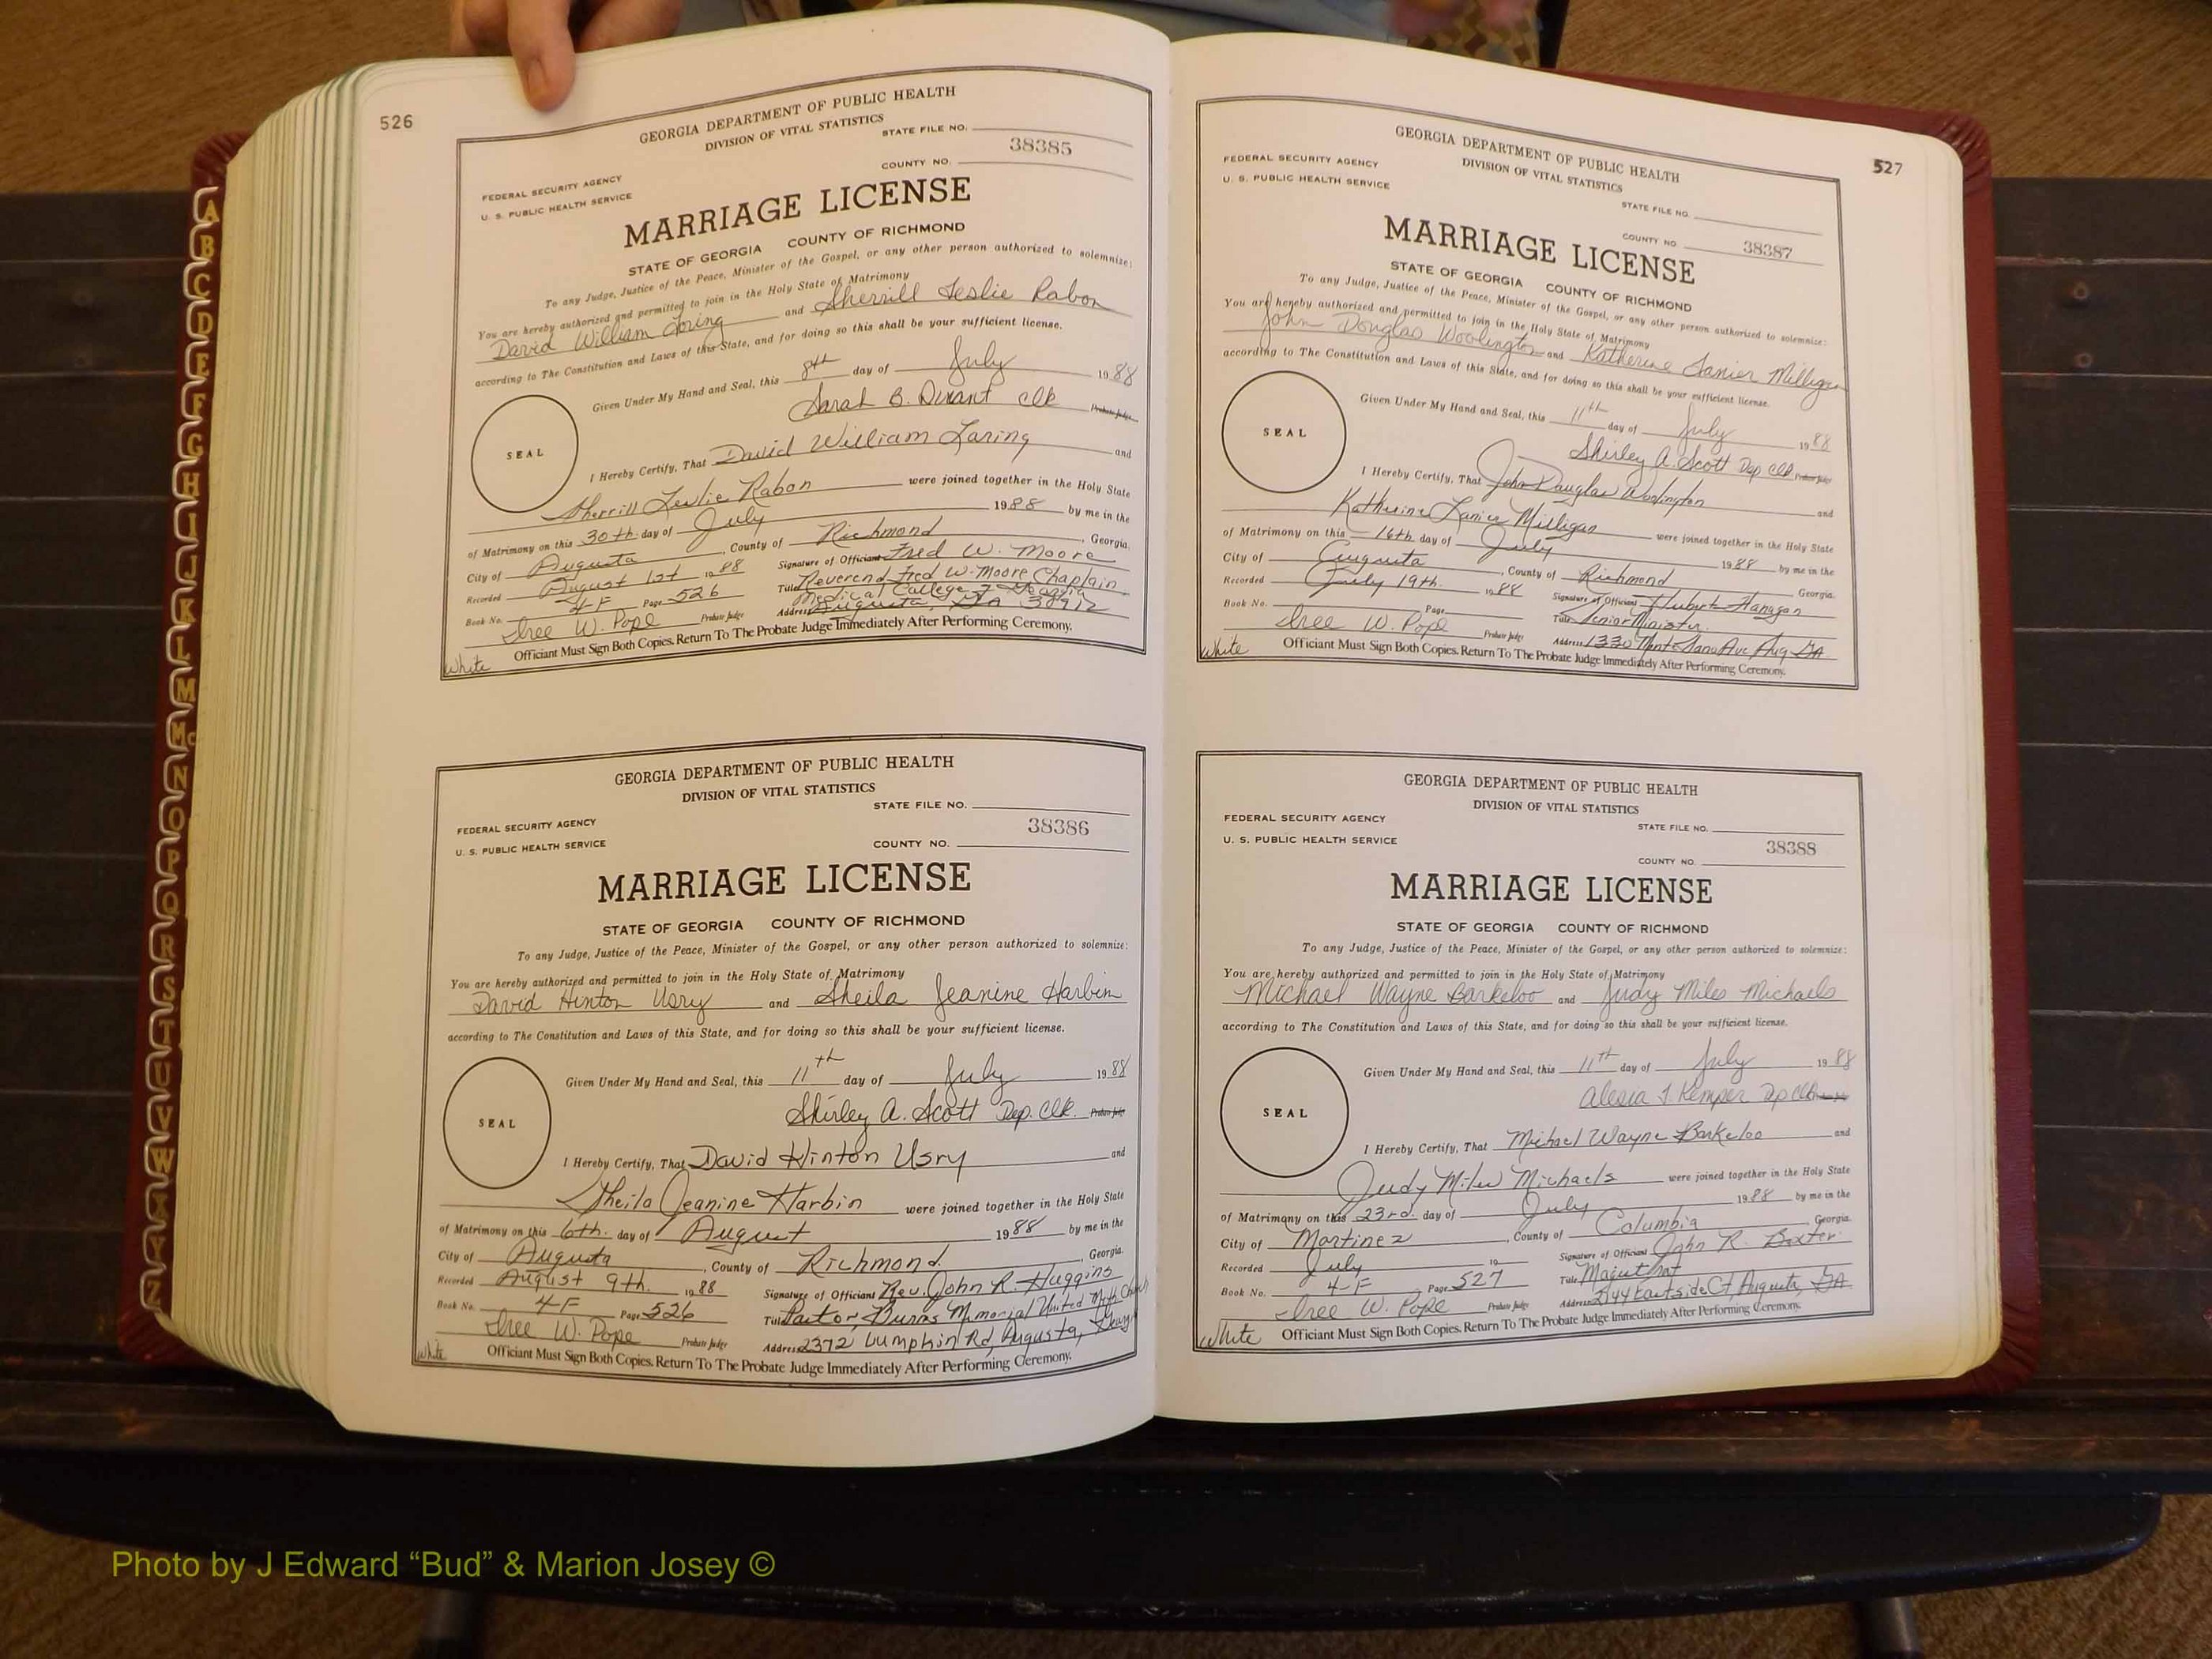 526
GEORGIA DEPARTMENT OF PUBLIC HEALTH
DIVISION OF VITAL STATISTICS
STATE FILE NO.
38385
COUNTY NO.
FEDERAL SECURITY AGENCY
U. S. PUBLIC HEALTH SERVICE
MARRIAGE LICENSE
STATE OF GEORGIA COUNTY OF RICHMOND
To any Judge, Justice of the Peace, Minister of the Gospel, or any other person authorized to solemnize:
You are hereby authorized and permitted to join in the Holy State of Matrimony
David William Loring and Sherrill Leslie Rabon
according to The Constitution and Laws of this State, and for doing so this shall be your sufficient license.
Given Under My Hand and Seal, this 8th day of July 1988
Sarah B. Durant Clk Probate Judge
SEAL
I Hereby Certify, That David William Laring and
Sherrill Leslie Rabon were joined together in the Holy State
of Matrimony on this 30th day of July 1988 by me in the
City of Augusta, County of Richmond, Georgia.
Recorded August 1st 1988 Signature of Officiant Fred W. Moore
Title Reverend Fred W. Moore Chaplain
Medical College of Georgia
Book No. 4F Page 526 Address Augusta, GA 30912
Iree W. Pope Probate Judge
White Officiant Must Sign Both Copies. Return To The Probate Judge Immediately After Performing Ceremony.
GEORGIA DEPARTMENT OF PUBLIC HEALTH
DIVISION OF VITAL STATISTICS
STATE FILE NO.
FEDERAL SECURITY AGENCY
38386
U. S. PUBLIC HEALTH SERVICE
COUNTY NO.
MARRIAGE LICENSE
STATE OF GEORGIA COUNTY OF RICHMOND
To any Judge, Justice of the Peace, Minister of the Gospel, or any other person authorized to solemnize:
You are hereby authorized and permitted to join in the Holy State of Matrimony
David Hinton Usry and Sheila Jeanine Harbin
according to The Constitution and Laws of this State, and for doing so this shall be your sufficient license.
Given Under My Hand and Seal, this 11th day of July 1988
Shirley A. Scott Dep. Clk. Probate Judge
SEAL
I Hereby Certify, That David Hinton Usry and
Sheila Jeanine Harbin were joined together in the Holy State
of Matrimony on this 6th. day of August 1988 by me in the
City of Augusta, County of Richmond, Georgia.
Recorded August 9th. 1988 Signature of Officiant Rev. John R. Huggins
Book No. 4F Page 526 Title Pastor, Burns Memorial United Meth Church
Iree W. Pope Probate Judge Address 2372 Lumpkin Rd, Augusta,
White Officiant Must Sign Both Copies. Return To The Probate Judge Immediately After Performing Ceremony.
527
GEORGIA DEPARTMENT OF PUBLIC HEALTH
DIVISION OF VITAL STATISTICS
FEDERAL SECURITY AGENCY
U. S. PUBLIC HEALTH SERVICE
STATE FILE NO.
COUNTY NO. 38387
MARRIAGE LICENSE
STATE OF GEORGIA COUNTY OF RICHMOND
To any Judge, Justice of the Peace, Minister of the Gospel, or any other person authorized to solemnize:
You are hereby authorized and permitted to join in the Holy State of Matrimony
John Douglas Woolington and Katherine Lanier Milligan
according to The Constitution and Laws of this State, and for doing so this shall be your sufficient license.
Given Under My Hand and Seal, this 11th day of July 1988
Shirley A. Scott Dep Clk Probate Judge
SEAL
I Hereby Certify, That John Douglas Woolington and
Katherine Lanier Milligan were joined together in the Holy State
of Matrimony on this 16th day of July 1988 by me in the
City of Augusta, County of Richmond Georgia.
Recorded July 19th. 1988 Signature of Officiant Hubert Flanagan
Book No. Page Title Senior Minister.
Iree W. Pope Probate Judge Address 1330 Monte Sano Ave Aug GA.
White Officiant Must Sign Both Copies. Return To The Probate Judge Immediately After Performing Ceremony.
GEORGIA DEPARTMENT OF PUBLIC HEALTH
DIVISION OF VITAL STATISTICS
FEDERAL SECURITY AGENCY
STATE FILE NO.
U. S. PUBLIC HEALTH SERVICE
38388
COUNTY NO.
MARRIAGE LICENSE
STATE OF GEORGIA COUNTY OF RICHMOND
To any Judge, Justice of the Peace, Minister of the Gospel, or any other person authorized to solemnize:
You are hereby authorized and permitted to join in the Holy State of Matrimony
Michael Wayne Barkeloo and Judy Miles Michaels
according to The Constitution and Laws of this State, and for doing so this shall be your sufficient license.
Given Under My Hand and Seal, this 11th day of July 1988
Alesia J. Kemper Dp Clk
SEAL
I Hereby Certify, That Michael Wayne Barkeloo and
Judy Miles Michaels were joined together in the Holy State
of Matrimony on this 23rd. day of July 1988 by me in the
City of Martinez, County of Columbia, Georgia.
Recorded July 19 Signature of Officiant John R. Baxter
Book No. 4F Page 527 Title
Iree W. Pope Probate Judge Address 2144 Eastside Ct, Augusta, GA.
White Officiant Must Sign Both Copies. Return To The Probate Judge Immediately After Performing Ceremony.
A
B
C
D
E
F
G
H
I
J
K
L
M
Mc
N
O
P
Q
R
S
T
U
V
W
X
Y
Z
Photo by J Edward “Bud” & Marion Josey ©